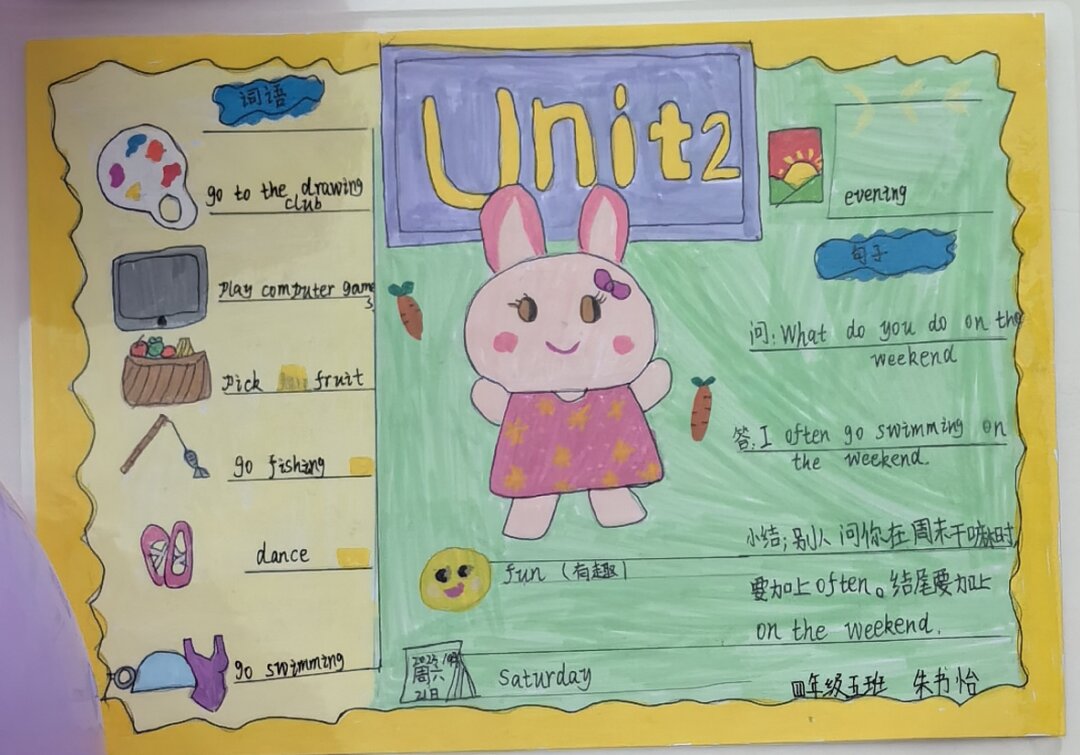 词语
go to the drawing
club
play computer game
s
Pick fruit
go fishing
dance
go swimming
Unit2
evening
句子
问:What do you do on the
weekend
答:I often go swimming on
the weekend.
小结:别人问你在周末干嘛时,
要加上often。结尾要加上
on the weekend.
fun (有趣)
周六
21日
Saturday
四年级五班 朱书怡